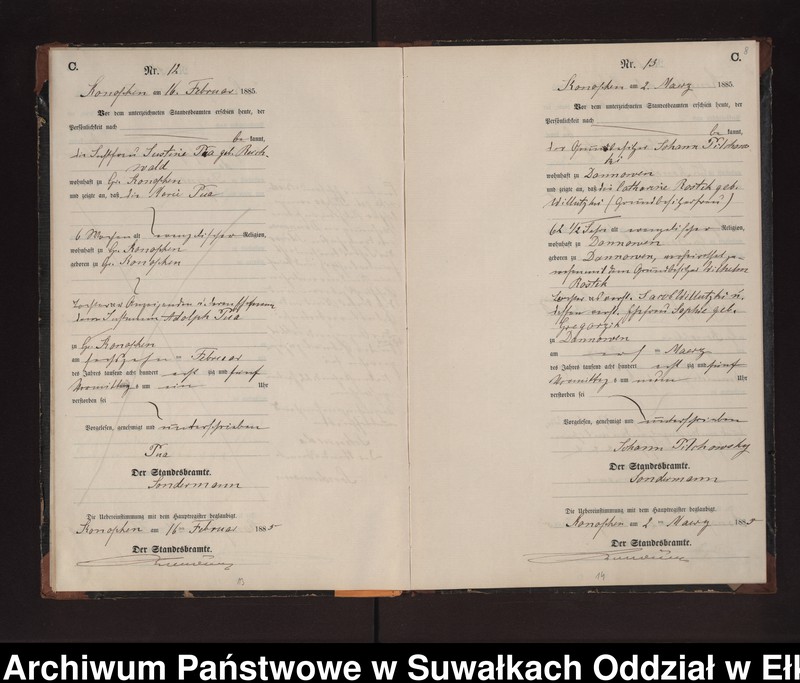 C.
Nr. 12
Konopken am 16. Februar 1885.
Vor dem unterzeichneten Standesbeamten erschien heute, der
Persönlichkeit nach
be kannt,
die Justine Pua geb. Reich-
wald
wohnhaft zu Gr. Konopken
und zeigte an, daß die Marie Pua
6 Wochen alt evangelischer Religion,
wohnhaft zu Gr. Konopken
geboren zu Gr. Konopken
Tochter der Anzeigenden u. deren Ehemann
Adolph Pua
zu Gr. Konopken
am sechszehn ten Februar
des Jahres tausend acht hundert acht zig und fünf
Vormittag s um ein Uhr
verstorben sei
Vorgelesen, genehmigt und unterschrieben
Pua
Der Standesbeamte.
Sondermann
Die Uebereinstimmung mit dem Hauptregister beglaubigt.
Konopken am 16 ten Februar 1885
Der Standesbeamte.
13
8
C.
Nr. 13
Konopken am 2. Maerz 1885.
Vor dem unterzeichneten Standesbeamten erschien heute, der
Persönlichkeit nach
be kannt,
der Grundbesitzer Johann Pilchows-
ki
wohnhaft zu Dannowen
und zeigte an, daß die Catharine Rostek geb.
Willutzki (Grundbesitzerfrau)
62 1/2 Jahr alt evangelischer Religion,
wohnhaft zu Dannowen
geboren zu Dannowen, verheirathet ge-
wesen mit dem Grundbesitzer Wilhelm
Rostek
Tochter des verst. Jacob Willutzki u.
dessen verst. Ehefrau Sophie geb.
Gregorzik
zu Dannowen
am ersten Maerz
des Jahres tausend acht hundert acht zig und fünf
Vormittag s um neun Uhr
verstorben sei
Vorgelesen, genehmigt und unterschrieben
Johann Pilchowsky
Der Standesbeamte.
Sondermann
Die Uebereinstimmung mit dem Hauptregister beglaubigt.
Konopken am 2 ten Maerz 1885
Der Standesbeamte.
14
Archiwum Państwowe w Suwałkach Oddział w Ełk